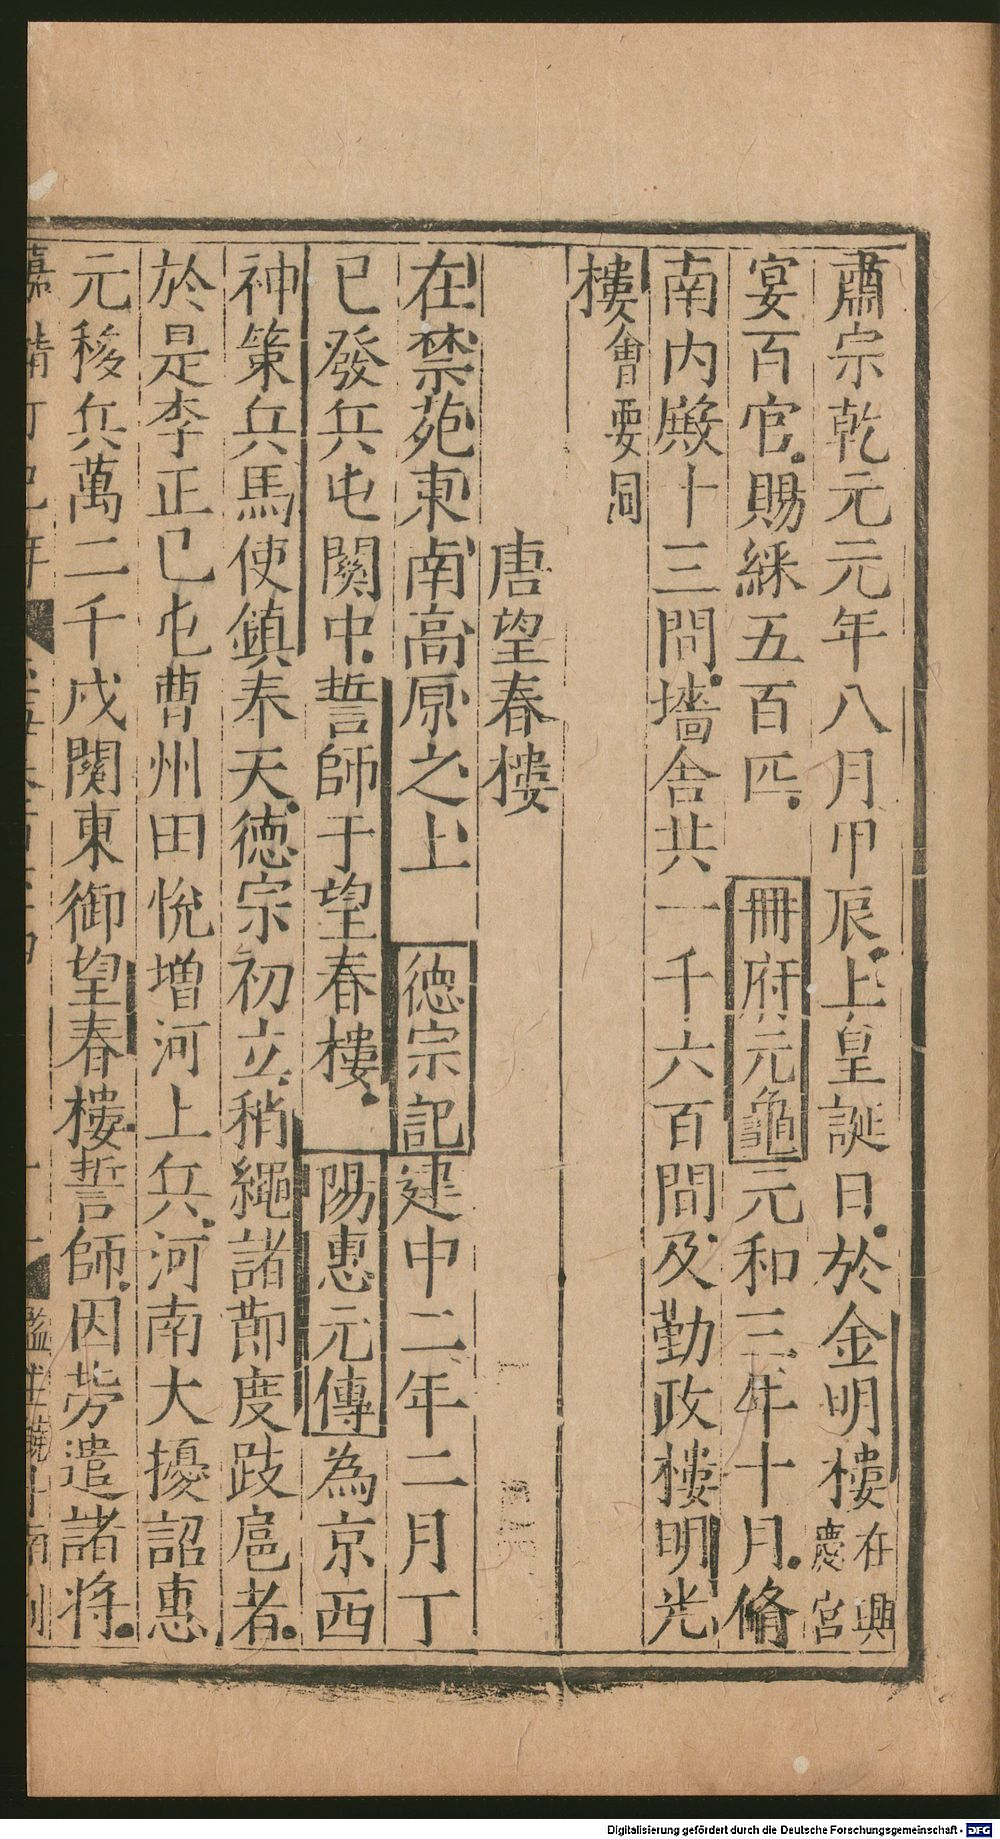 肅宗乾元元年八月甲辰上皇誕日於金明樓在興慶宮
宴百官賜綵五百匹冊府元龜元和三年十月脩
南內殿十三間墻舍共一千六百間及勤政樓明光
樓會要同
唐望春樓
在禁苑東南高原之上德宗記建中二年二月丁
巳發兵屯關中誓師于望春樓陽惠元傳為京西
神策兵馬使鎮奉天德宗初立稍繩諸節度跋扈者
於是李正已屯曹州田悅增河上兵河南大擾詔惠
元移兵萬二千戍關東御望春樓誓師因勞遣諸將
Digitalisierung gefördert durch die Deutsche Forschungsgemeinschaft - DFG